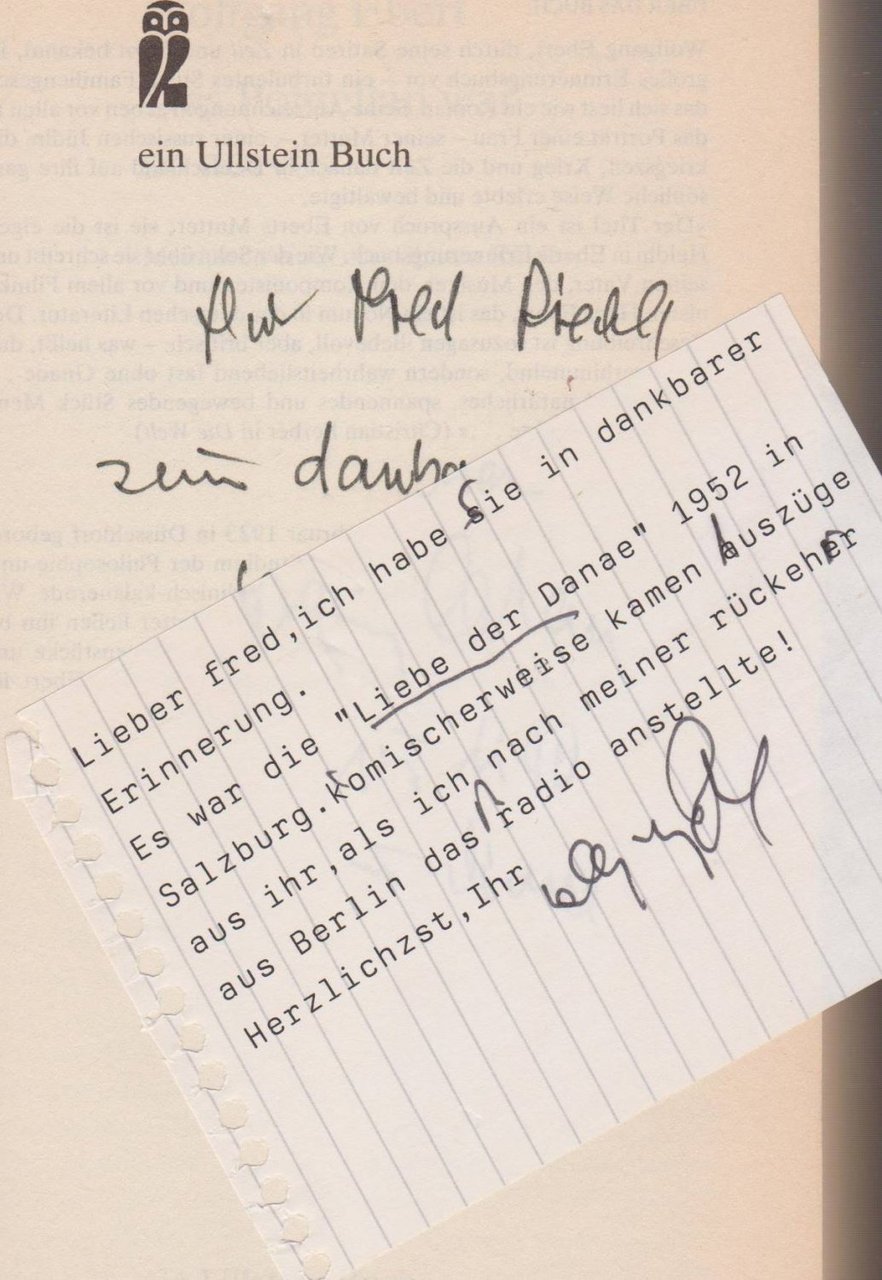 ein Ullstein Buch
Fred
sein dankba
Lieber fred,ich habe Sie in dankbarer
Erinnerung.
Es war die "Liebe der Danae" 1952 in
Salzburg.Komischerweise kamen Auszüge
aus ihr,als ich nach meiner rückeher
aus Berlin das radio anstellte!
Herzlichzst,Ihr